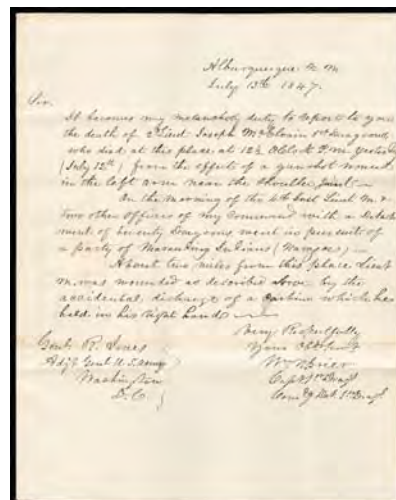 Alburquerque N. M.
July 13th 1847.
Sir.
It becomes my melancholy duty to report to you
the death of 2d Lieut Joseph McElvain 1st Dragoons,
who died at this place at 12½ OClock P.m yesterday
(July 12th) from the effects of a gunshot wound
in the left arm near the shoulder joint.
On the morning of the 4th Lieut M. &
two other officers of my command with a Detach
ment of Seventy Dragoons went in pursuit of
a party of Marauding Indians (Navajoes)
About ten miles from this place Lieut
M. was wounded as described above by the
accidental discharge of a Carbine which he
held in his right hand
Very Respectfully
Your Obt Servt
Genl. R. Jones
Adjt Genl U. S. Army
Washington
D. C.
Capt 1st Dragns
Comdg 1st Dragns